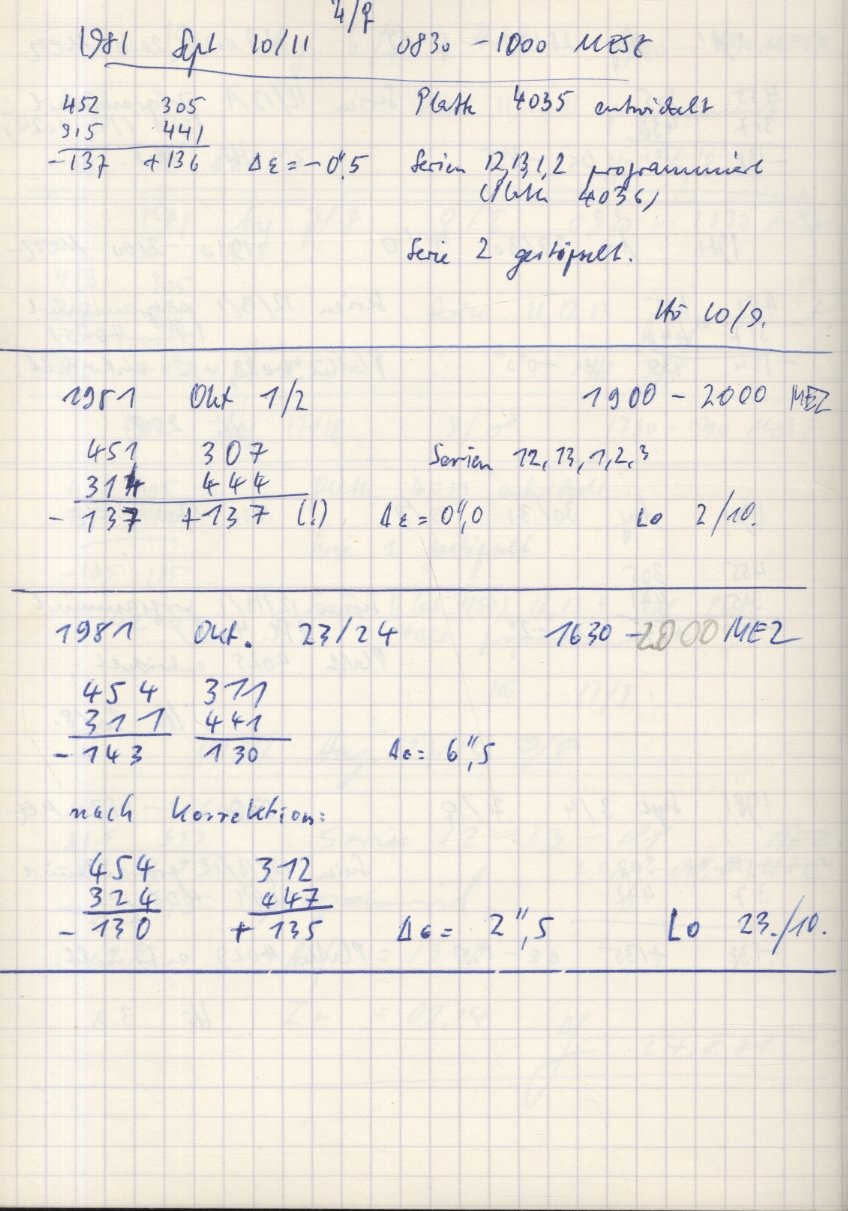 4/9
1981 Sept 10/11 0830 - 1000 MESZ
452 305 Platte 4035 entwickelt
315 441
-137 +136 Δε = -0",5 Serien 12,13,1,2 programmiert
(Platte 4036)
Serie 2 gestöpselt.
Hö 10/9.
1981 Okt 1/2 1900 - 2000 MEZ
451 307 Serien 12, 13, 1, 2, 3
314 444
-137 +137 (!) Δε = 0",0 Lo 2/10.
1981 Okt. 23/24 1630 - 2000 MEZ
454 311
311 441
-143 130 Δε = 6",5
nach Korrektion:
454 312
324 447
-130 +135 Δε = 2",5 Lo 23./10.